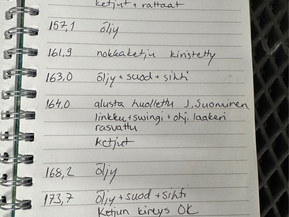 ketjut + rattaat
157,1 öljy
161,9 nokkaketju kiristetty
163,0 öljy + suod + sihti
164,0 alusta huollettu J. Suominen
linkku + swingi + ohj. laakeri
rasvattu
ketjut
168,2 öljy
173,7 öljy + suod + sihti
Ketjun kireys OK